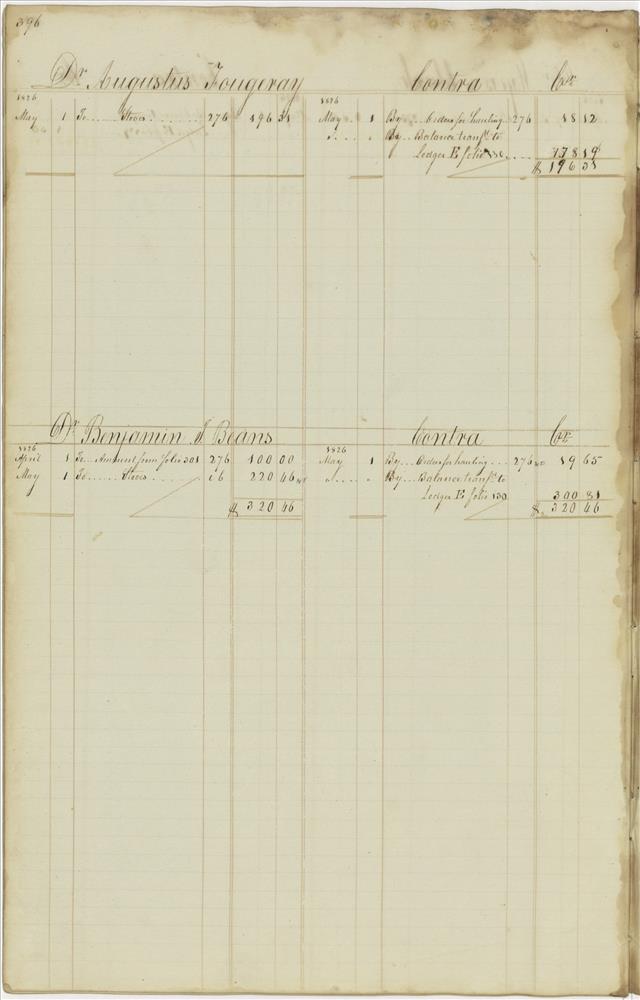 396
Dr Augustus Fougeray Contra Cr
1826 1826
May 1 To Stoves 276 196 31 May 1 By Orders for hauling 276 18 12
" " By Balance transfd to
Ledger E folio 130 178 19
$ 196 31
Dr Benjamin J Beans Contra Cr
1826 1826
April 1 To Amount from folio 301 276 100 00 May 1 By Orders for hauling 276 19 65
May 1 To Stoves 220 46 " " By Balance transfd to
Ledger E folio 130 300 81
$ 320 46 $ 320 46